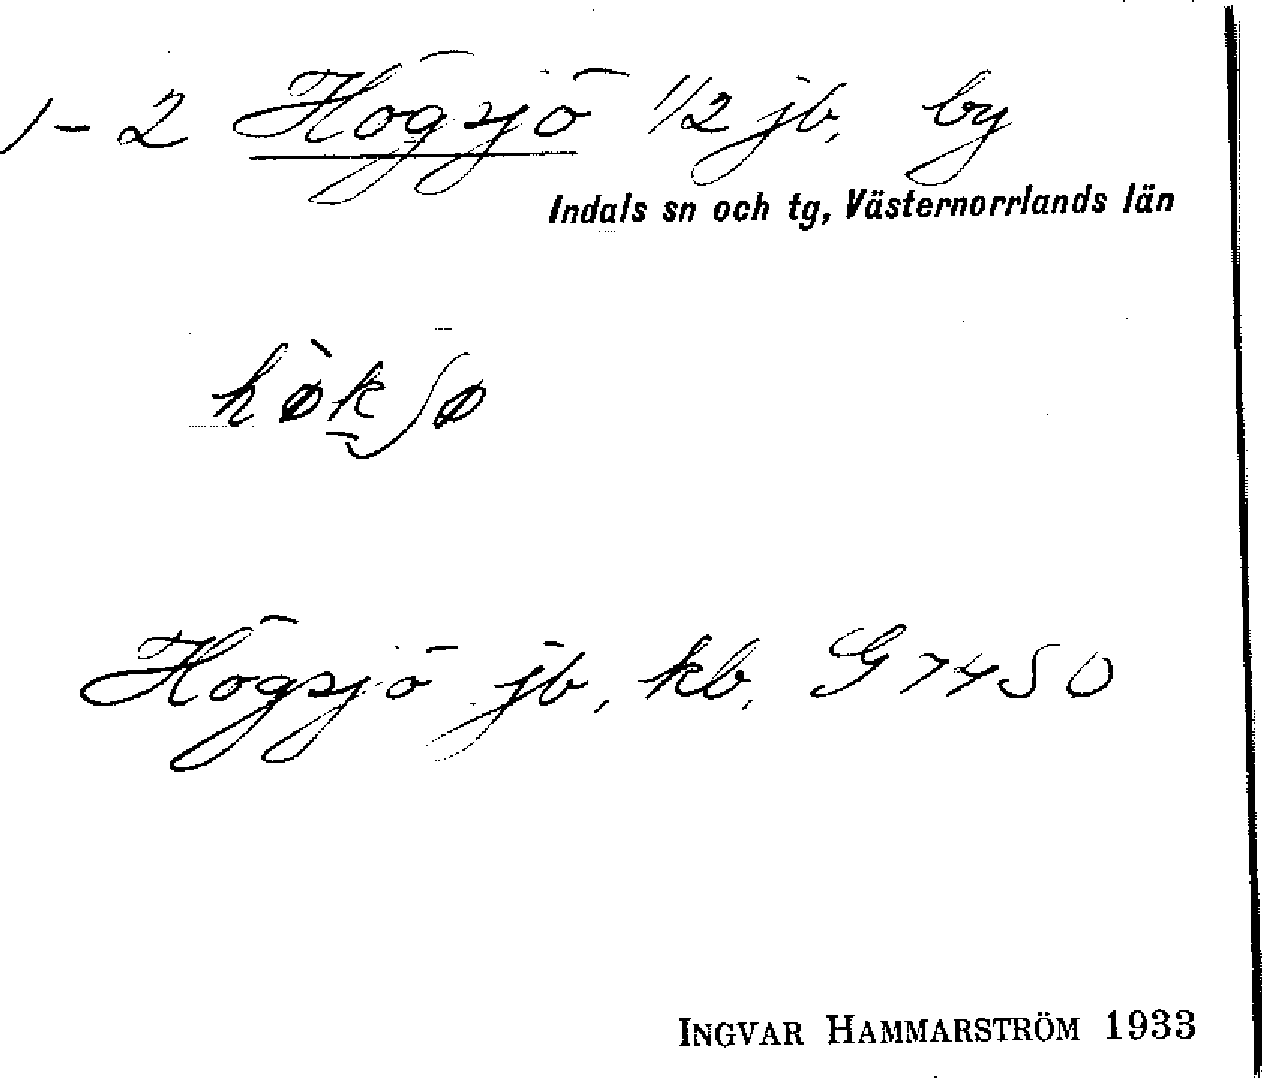 1-2 Högsjö 1/2 jb, by
Indals sn och tg, Västernorrlands län
hø̀kʃø
Högsjö jb, kb, G7450
INGVAR HAMMARSTRÖM 1933